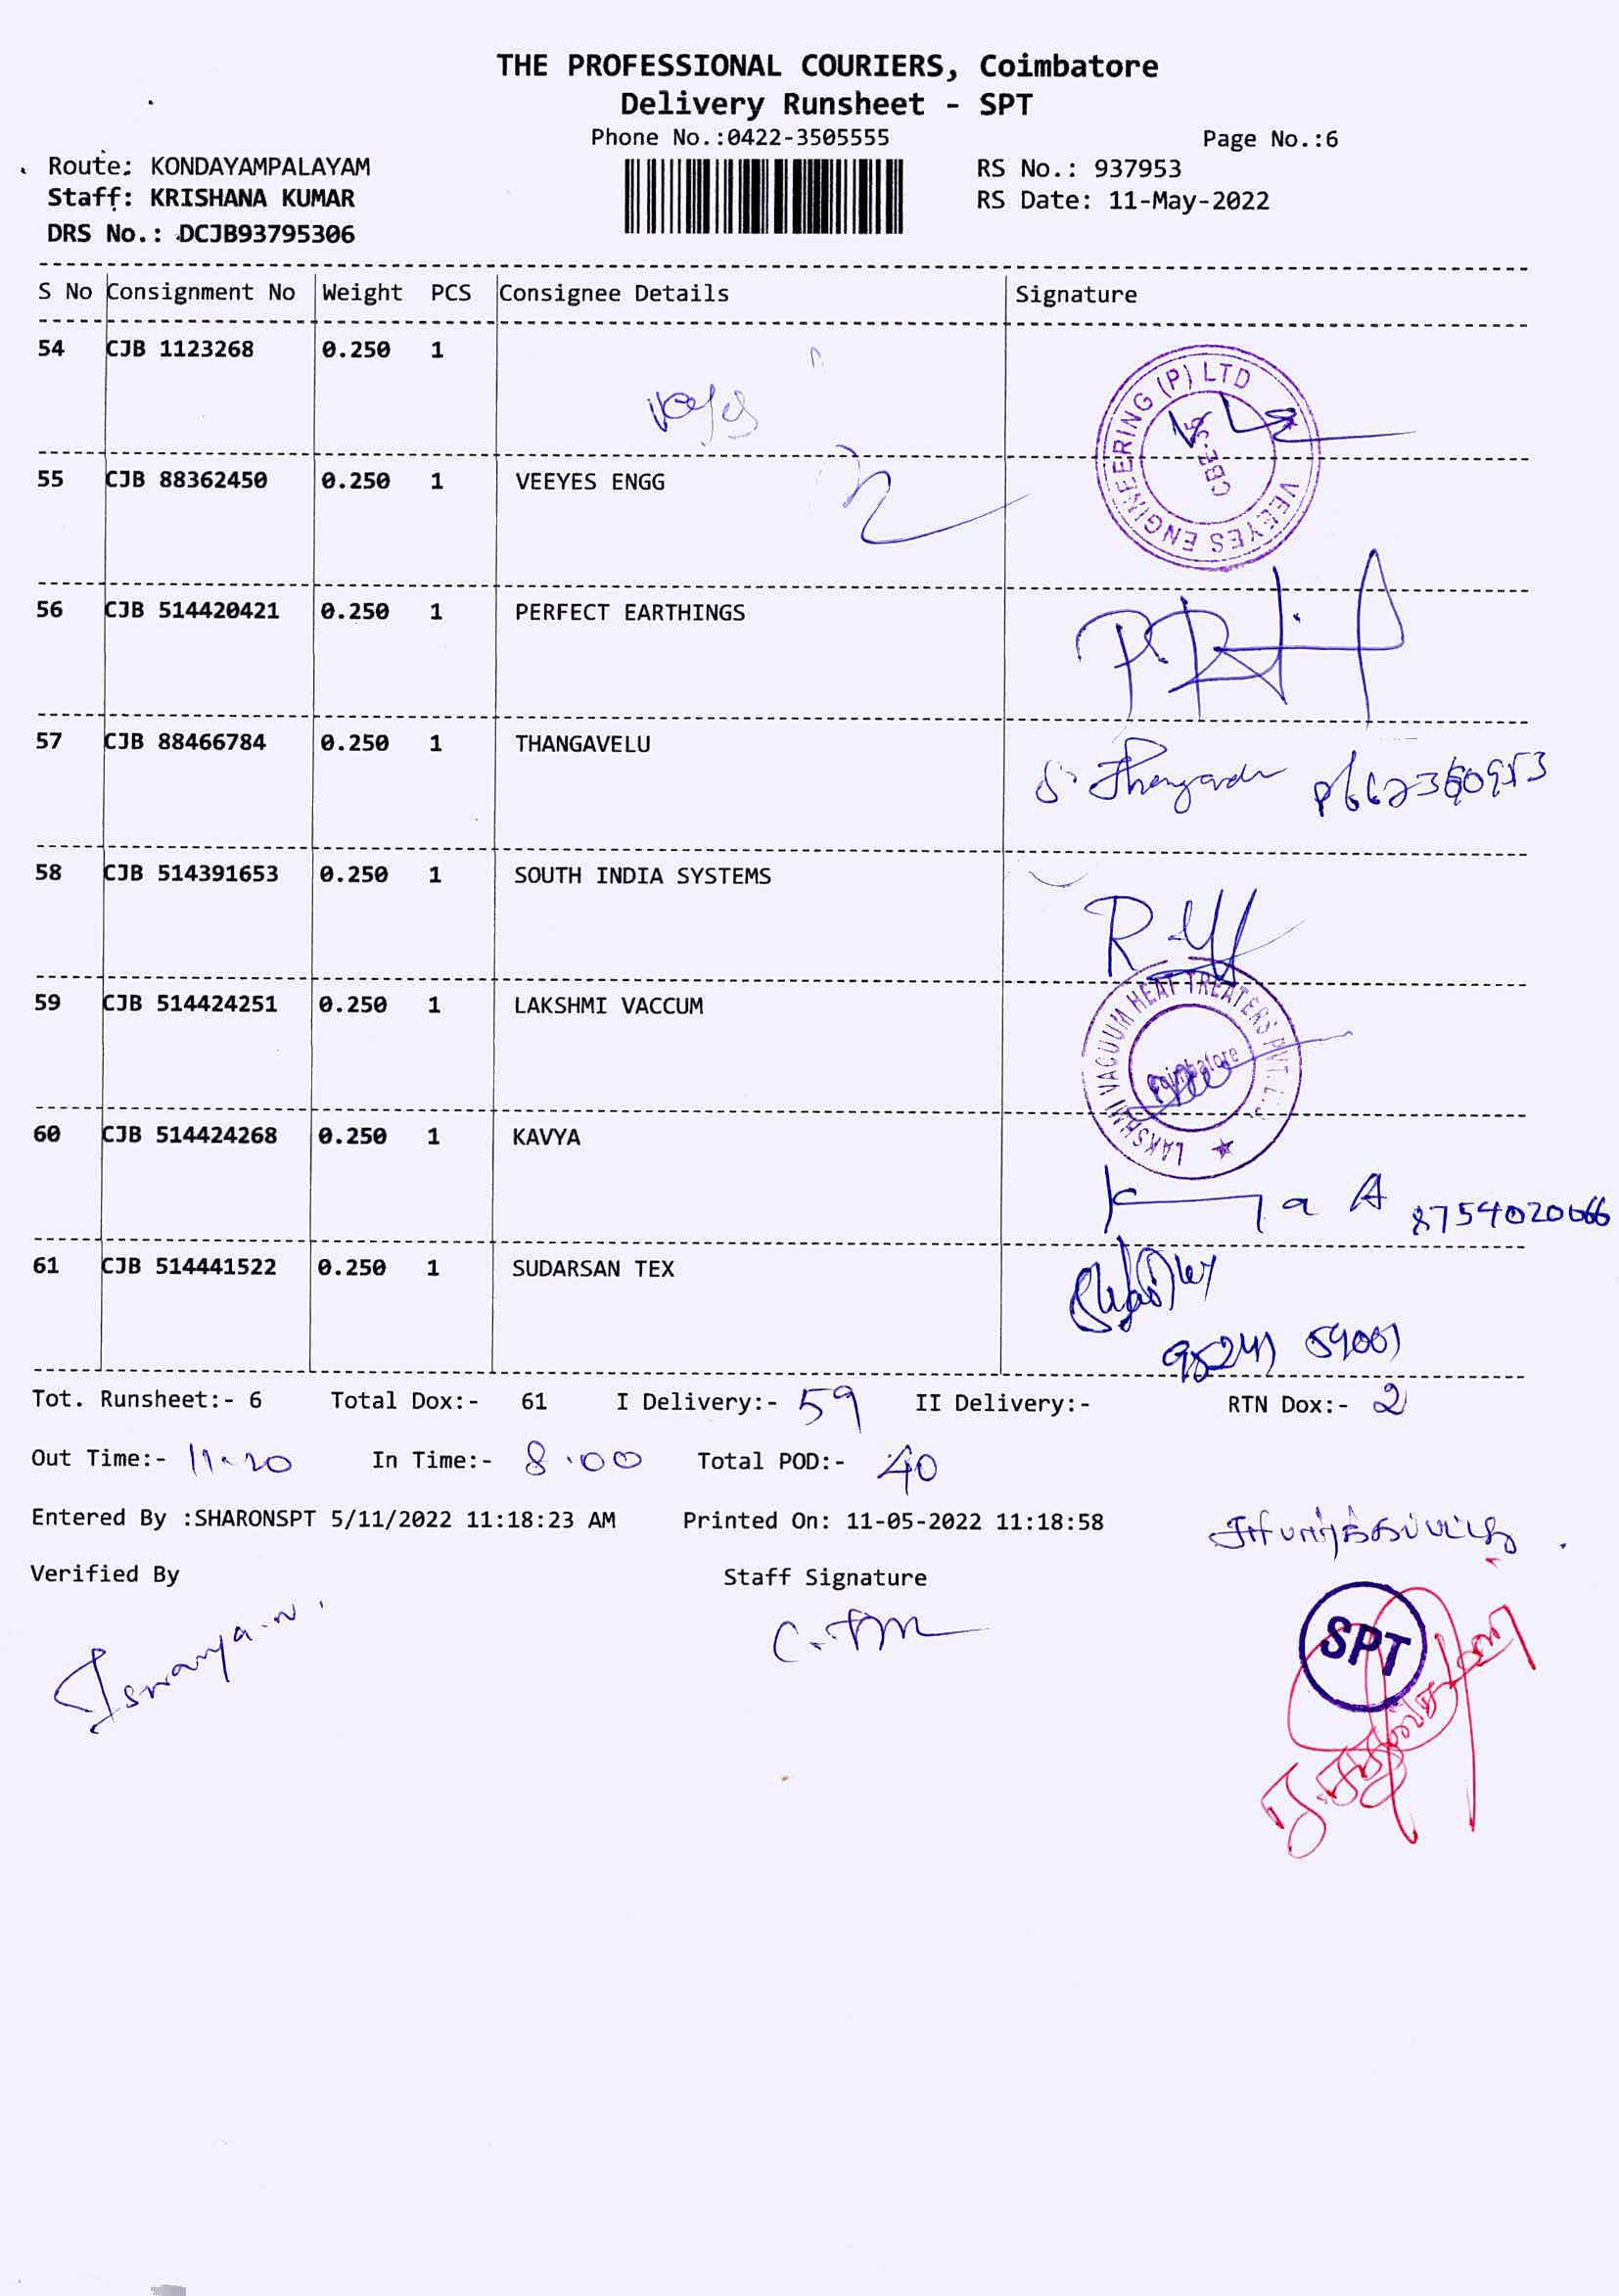 THE PROFESSIONAL COURIERS, Coimbatore
Delivery Runsheet - SPT
Phone No.:0422-3505555 Page No.:6
Route: KONDAYAMPALAYAM RS No.: 937953
Staff: KRISHANA KUMAR RS Date: 11-May-2022
DRS No.: DCJB93795306
S No Consignment No Weight PCS Consignee Details Signature
54 CJB 1123268 0.250 1
VEEYES ENGINEERING (P) LTD
CBE-35
55 CJB 88362450 0.250 1 VEEYES ENGG
56 CJB 514420421 0.250 1 PERFECT EARTHINGS
57 CJB 88466784 0.250 1 THANGAVELU
58 CJB 514391653 0.250 1 SOUTH INDIA SYSTEMS
59 CJB 514424251 0.250 1 LAKSHMI VACCUM
LAKSHMI VACUUM HEAT TREATERS PVT.
Coimbatore
60 CJB 514424268 0.250 1 KAVYA
8754020066
61 CJB 514441522 0.250 1 SUDARSAN TEX
Tot. Runsheet:- 6 Total Dox:- 61 I Delivery:- 59 II Delivery:- RTN Dox:- 2
Out Time:- 11.20 In Time:- 8.00 Total POD:- 40
Entered By :SHARONSPT 5/11/2022 11:18:23 AM Printed On: 11-05-2022 11:18:58
சரிபார்க்கப்பட்டது.
Verified By Staff Signature
SPT